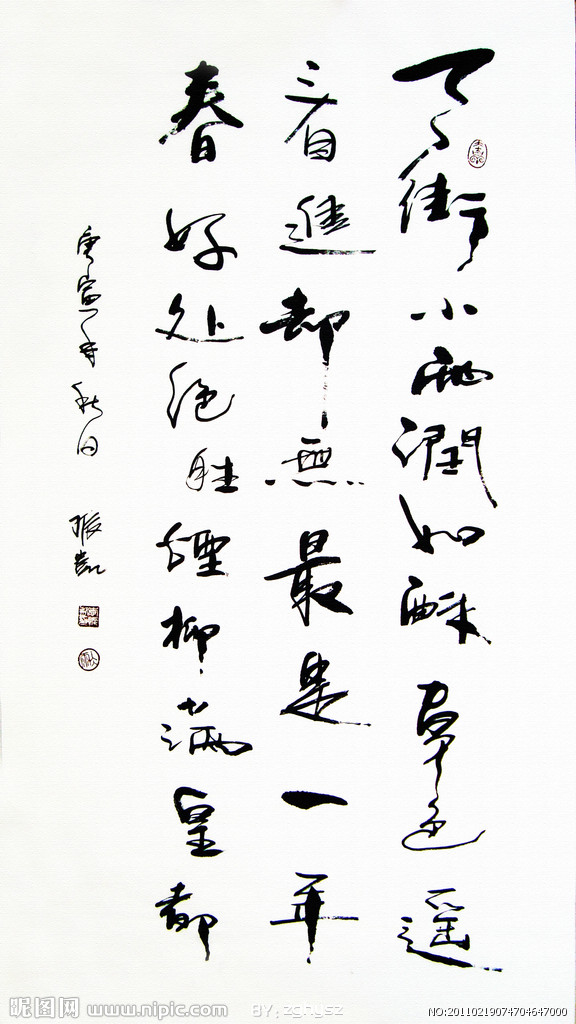 天街小雨潤如酥草色遥
看進却無最是一年
春好处绝胜煙柳满皇都
庚寅年秋日 振凱
昵图网 www.nipic.com BY: zghysz NO:20110219074704647000